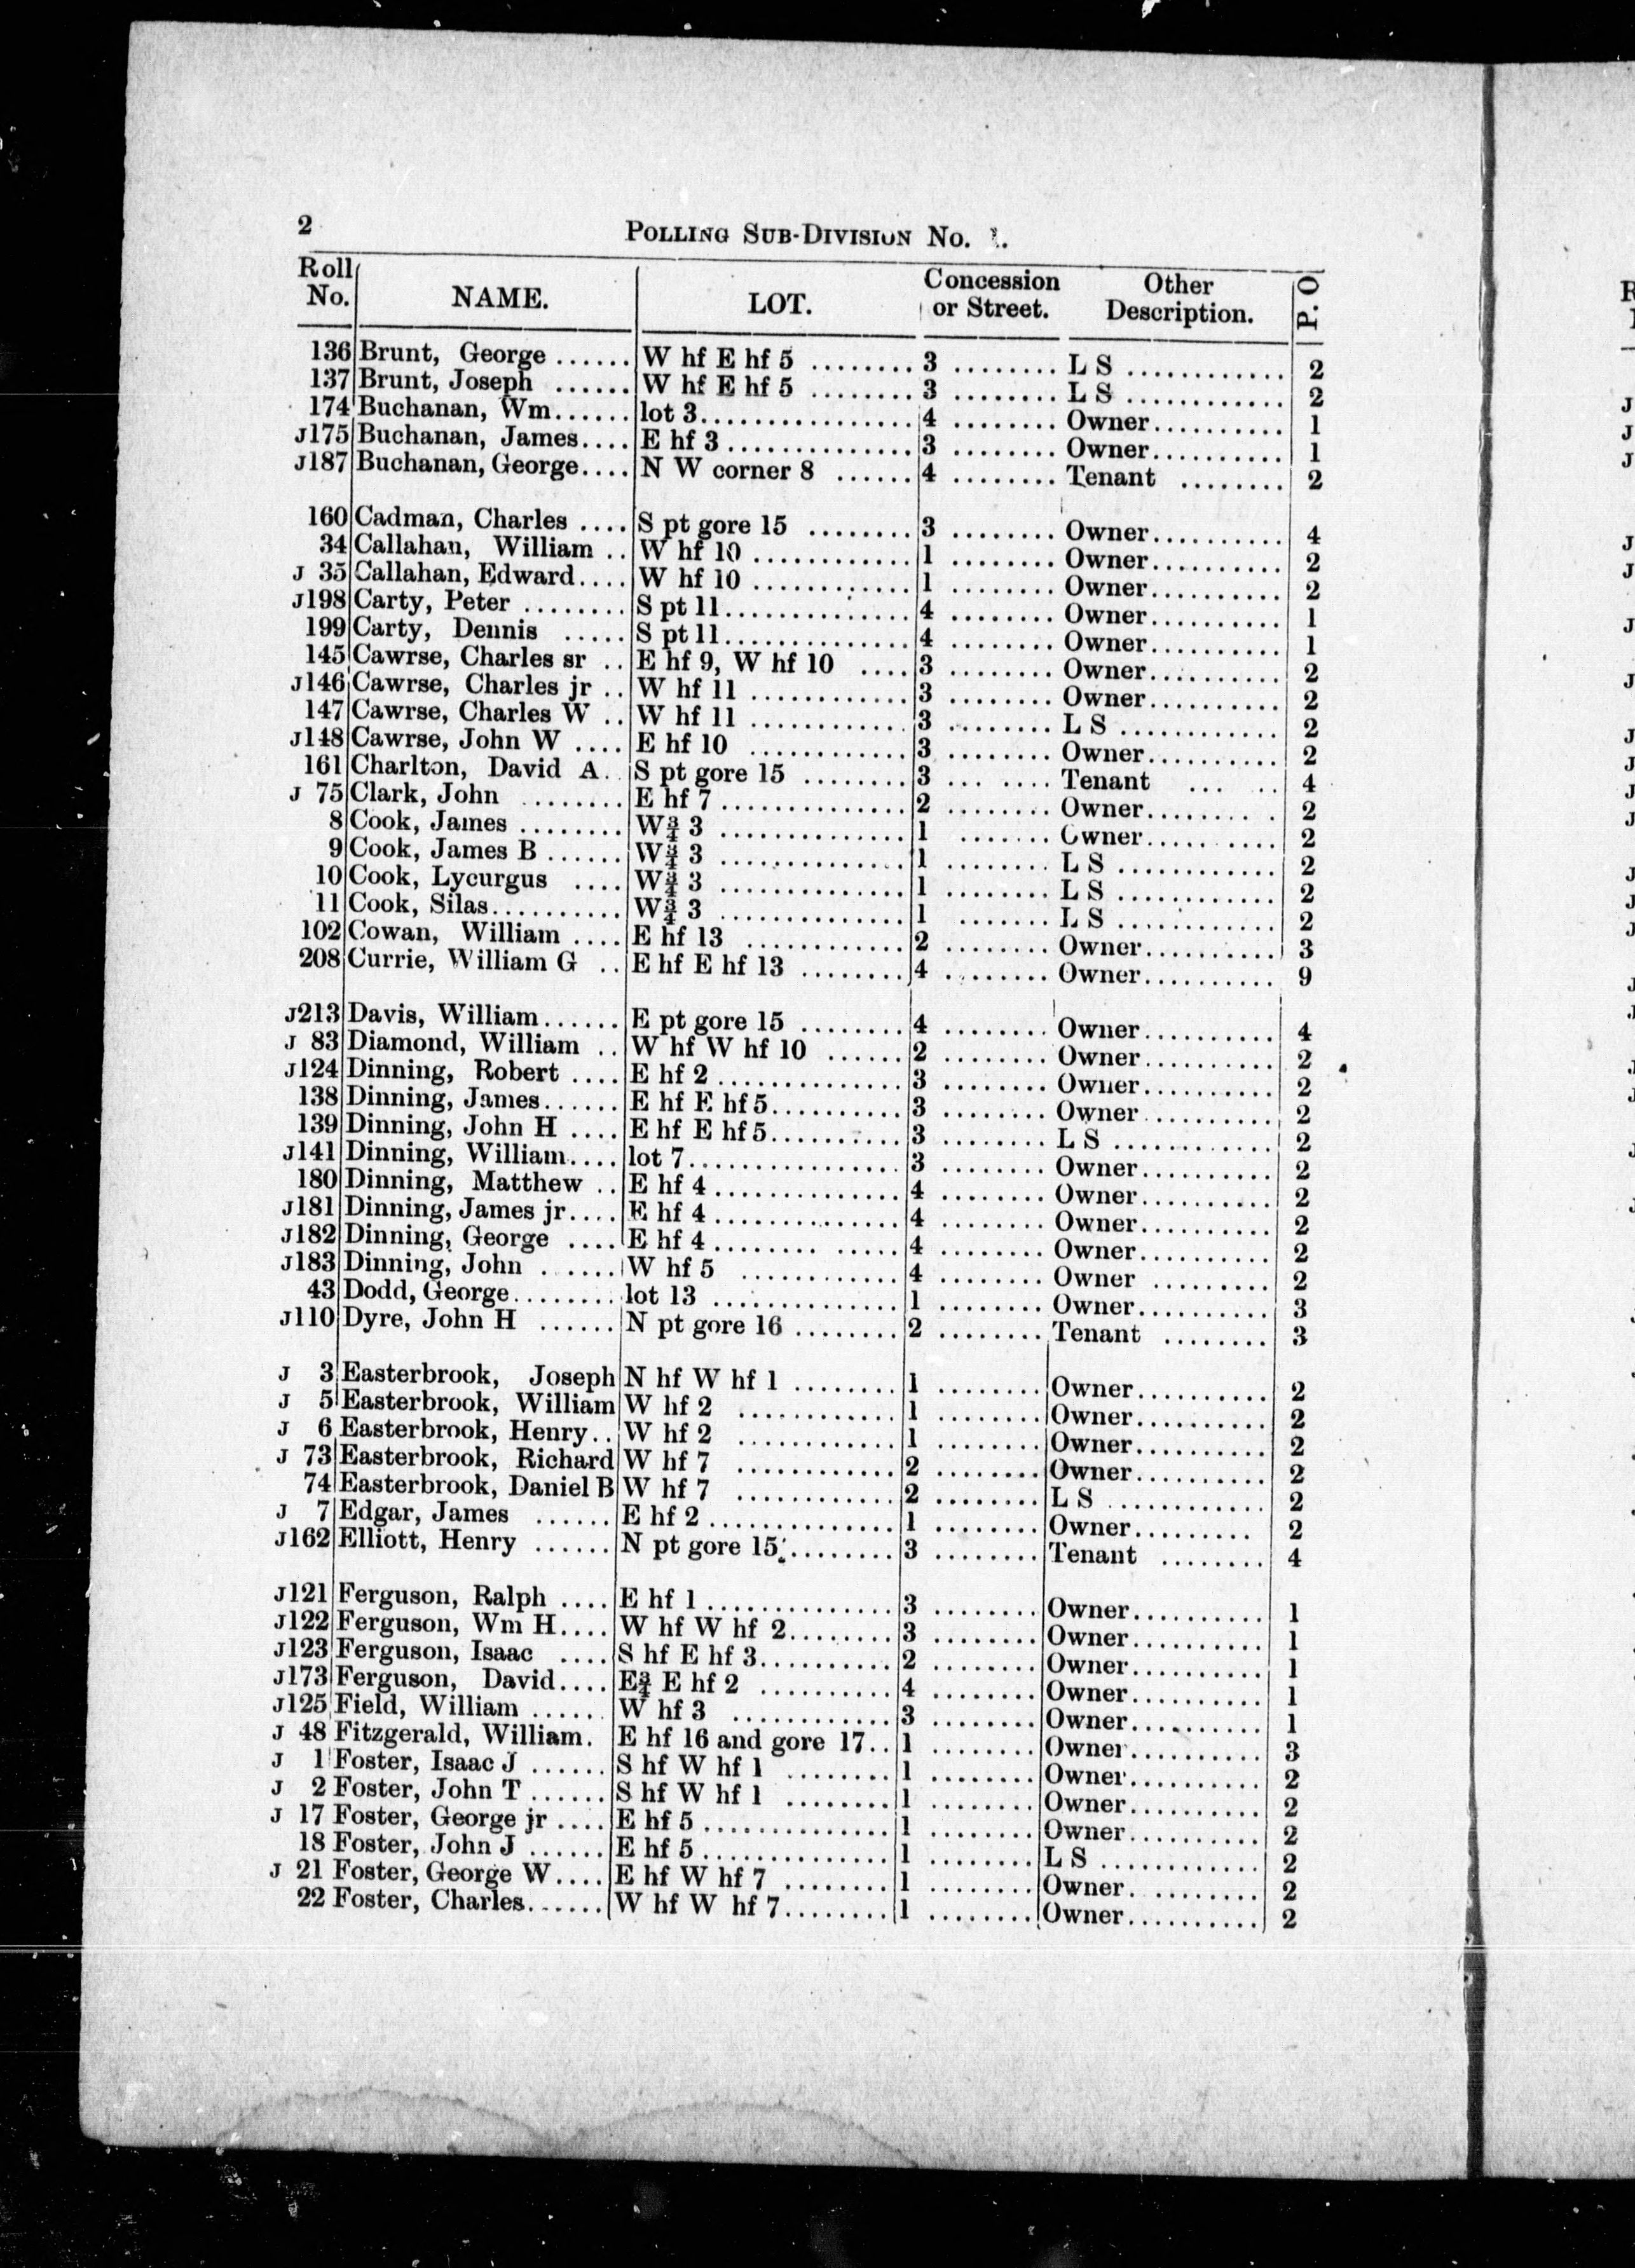 2 POLLING SUB-DIVISION No. 1.
Roll No. NAME. LOT. Concession or Street. Other Description. P. O
136 Brunt, George ...... W hf E hf 5 ........ 3 ........ L S ............ 2
137 Brunt, Joseph ...... W hf E hf 5 ........ 3 ........ L S ............ 2
174 Buchanan, Wm...... lot 3................ 4 ........ Owner.......... 1
J175 Buchanan, James.... E hf 3.............. 3 ........ Owner.......... 1
J187 Buchanan, George.... N W corner 8 ...... 4 ........ Tenant ........ 2
160 Cadman, Charles .... S pt gore 15 ........ 3 ........ Owner.......... 4
34 Callahan, William .. W hf 10 ............ 1 ........ Owner.......... 2
J 35 Callahan, Edward.... W hf 10 ............ 1 ........ Owner.......... 2
J198 Carty, Peter ........ S pt 11.............. 4 ........ Owner.......... 1
199 Carty, Dennis ..... S pt 11.............. 4 ........ Owner.......... 1
145 Cawrse, Charles sr .. E hf 9, W hf 10 .... 3 ........ Owner.......... 2
J146 Cawrse, Charles jr .. W hf 11 ............ 3 ........ Owner.......... 2
147 Cawrse, Charles W .. W hf 11 ............ 3 ........ L S ............ 2
J148 Cawrse, John W .... E hf 10 ............ 3 ........ Owner.......... 2
161 Charlton, David A.. S pt gore 15 ........ 3 ... .... Tenant ... .. 4
J 75 Clark, John ........ E hf 7.............. 2 ........ Owner.......... 2
8 Cook, James ........ W¾ 3 .............. 1 ....... Owner.......... 2
9 Cook, James B ...... W¾ 3 .............. 1 ........ L S ............ 2
10 Cook, Lycurgus .... W¾ 3 .............. 1 ........ L S ............ 2
11 Cook, Silas.......... W¾ 3 .............. 1 ....... L S ............ 2
102 Cowan, William .... E hf 13 ............ 2 ........ Owner.......... 3
208 Currie, William G .. E hf E hf 13 ........ 4 ........ Owner.......... 9
J213 Davis, William...... E pt gore 15 ........ 4 ........ Owner.......... 4
J 83 Diamond, William .. W hf W hf 10 ...... 2 ........ Owner.......... 2
J124 Dinning, Robert .... E hf 2.............. 3 ........ Owner.......... 2
138 Dinning, James...... E hf E hf 5.......... 3 ........ Owner.......... 2
139 Dinning, John H .... E hf E hf 5.......... 3 ........ L S ............ 2
J141 Dinning, William.... lot 7................ 3 ........ Owner.......... 2
180 Dinning, Matthew .. E hf 4.............. 4 ........ Owner.......... 2
J181 Dinning, James jr.... E hf 4.............. 4 ........ Owner.......... 2
J182 Dinning, George .... E hf 4........ ..... 4 ........ Owner.......... 2
J183 Dinning, John ...... W hf 5 ............ 4 ........ Owner ......... 2
43 Dodd, George........ lot 13 .............. 1 ........ Owner.......... 3
J110 Dyre, John H ...... N pt gore 16 ........ 2 ........ Tenant ........ 3
J 3 Easterbrook, Joseph N hf W hf 1 ........ 1 ........ Owner.......... 2
J 5 Easterbrook, William W hf 2 ............ 1 ........ Owner.......... 2
J 6 Easterbrook, Henry.. W hf 2 ............ 1 ........ Owner.......... 2
J 73 Easterbrook, Richard W hf 7 ............ 2 ........ Owner.......... 2
74 Easterbrook, Daniel B W hf 7 ............ 2 ........ L S ............ 2
J 7 Edgar, James ...... E hf 2.............. 1 ........ Owner......... 2
J162 Elliott, Henry ...... N pt gore 15......... 3 ........ Tenant ........ 4
J121 Ferguson, Ralph .... E hf 1.............. 3 ........ Owner.......... 1
J122 Ferguson, Wm H.... W hf W hf 2........ 3 ........ Owner.......... 1
J123 Ferguson, Isaac .... S hf E hf 3.......... 2 ........ Owner.......... 1
J173 Ferguson, David.... E¾ E hf 2 .......... 4 ........ Owner.......... 1
J125 Field, William ...... W hf 3 ............ 3 ........ Owner.......... 1
J 48 Fitzgerald, William. E hf 16 and gore 17.. 1 ........ Owner.......... 3
J 1 Foster, Isaac J ...... S hf W hf 1 ........ 1 ........ Owner.......... 2
J 2 Foster, John T ...... S hf W hf 1 ........ 1 ........ Owner.......... 2
J 17 Foster, George jr .... E hf 5.............. 1 ........ Owner.......... 2
18 Foster, John J ...... E hf 5.............. 1 ........ L S ............ 2
J 21 Foster, George W.... E hf W hf 7 ........ 1 ........ Owner.......... 2
22 Foster, Charles...... W hf W hf 7........ 1 ........ Owner.......... 2